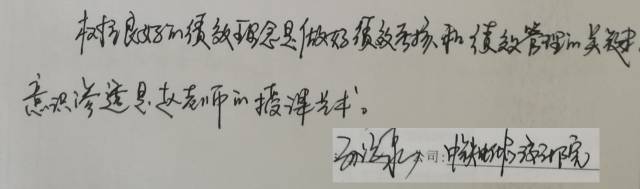 树立良好的绩效理念是做好绩效考核和绩效管理的关键.
意识渗透是赵老师的授课艺术。
司:中铁